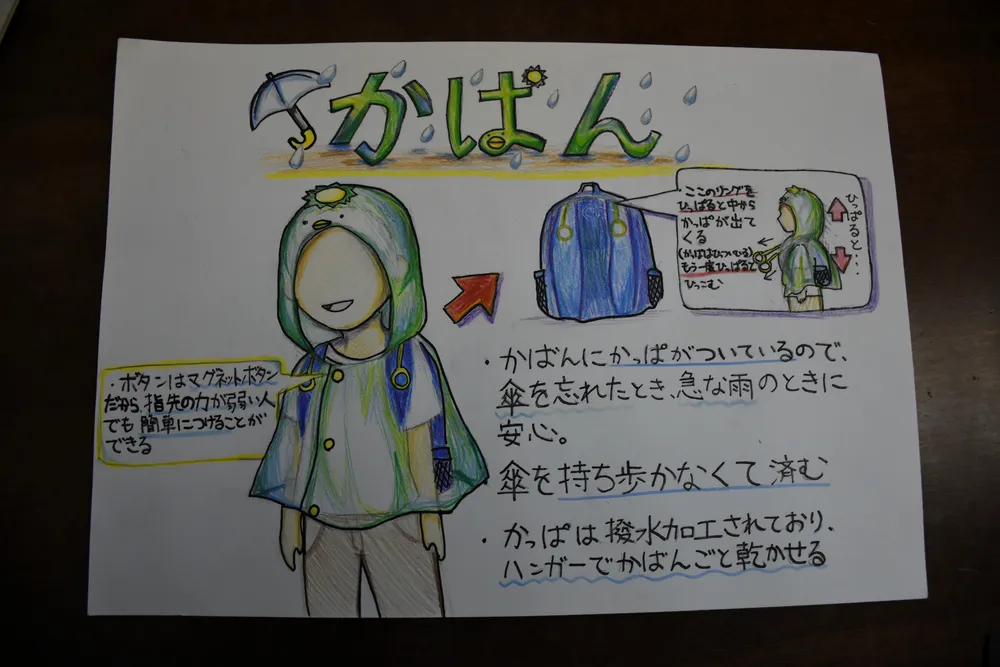 かぱん
ここのリングを
ひっぱると中から
かっぱが出て
くる
もう一度ひっぱると
ひっこむ
ひっぱると・・・
・ボタンはマグネットボタン
だから、指先の力が弱い人
でも簡単につけることが
できる
・かばんにかっぱがついているので、
傘を忘れたとき、急な雨のときに
安心。
傘を持ち歩かなくて済む
・かっぱは撥水加工されており、
ハンガーでかばんごと乾かせる